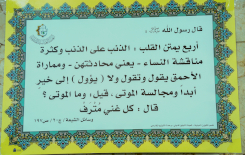 قال رسول الله ﷺ:
أربع يمتن القلب : الذنب على الذنب وكثرة
مناقشة النساء - يعني محادثتهن - ومماراة
الأحمق يقول وتقول ولا (يؤول) الى خير
أبداً ومجالسة الموتى ، قيل: وما الموتى ؟
قال : كل غني مُترف
وسائل الشيعة